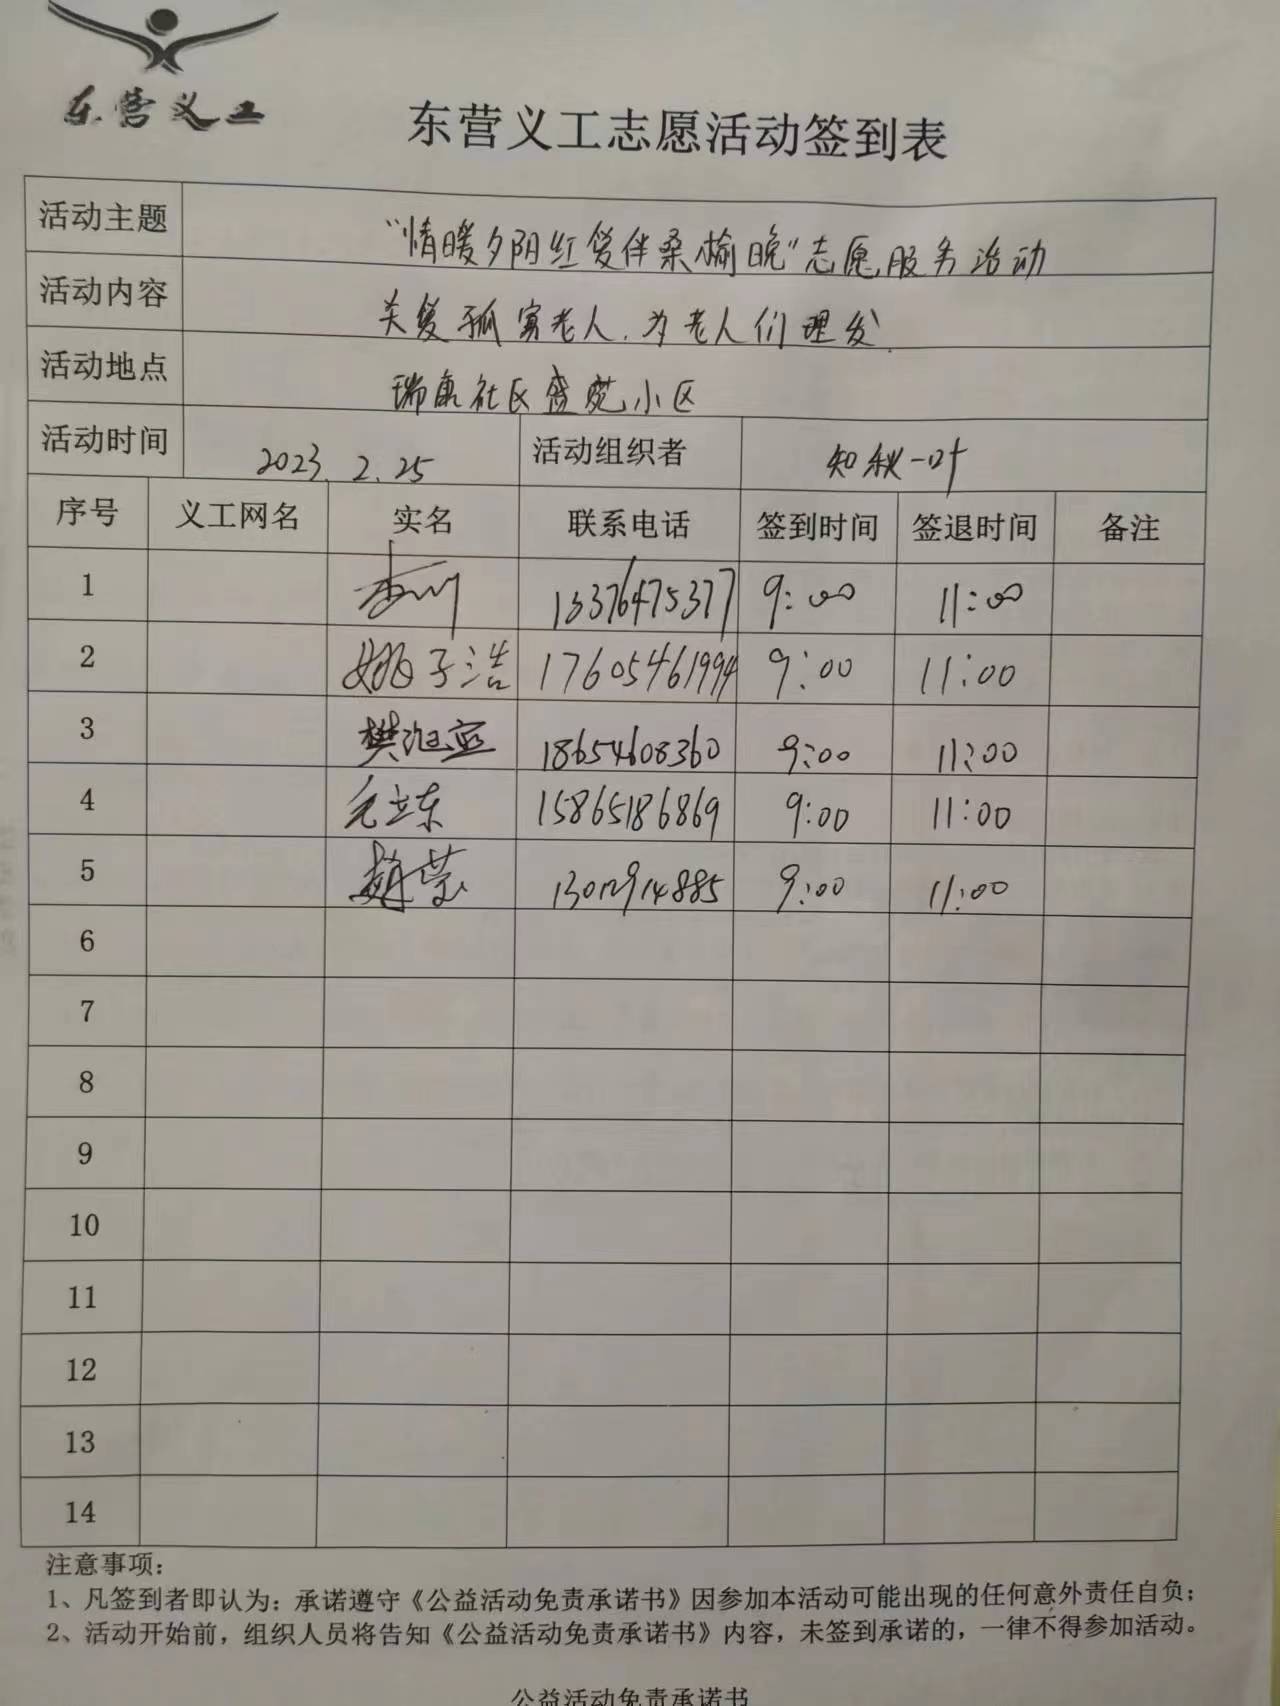 东营义工
东营义工志愿活动签到表
活动主题 "情暖夕阳红爱伴桑榆晚"志愿服务活动
活动内容 关爱孤寡老人.为老人们理发.
活动地点 瑞康社区盛苑小区
活动时间 2023.2.25 活动组织者 知秋一叶
序号 义工网名 实名 联系电话 签到时间 签退时间 备注
1 13376475377 9:00 11:00
2 姚子浩 17605461994 9:00 11:00
3 樊旭 18654608360 9:00 11:00
4 毛立东 15865186869 9:00 11:00
5 赵莹 13012914885 9:00 11:00
6
7
8
9
10
11
12
13
14
注意事项：
1、凡签到者即认为：承诺遵守《公益活动免责承诺书》因参加本活动可能出现的任何意外责任自负；
2、活动开始前，组织人员将告知《公益活动免责承诺书》内容，未签到承诺的，一律不得参加活动。
公益活动免责承诺书